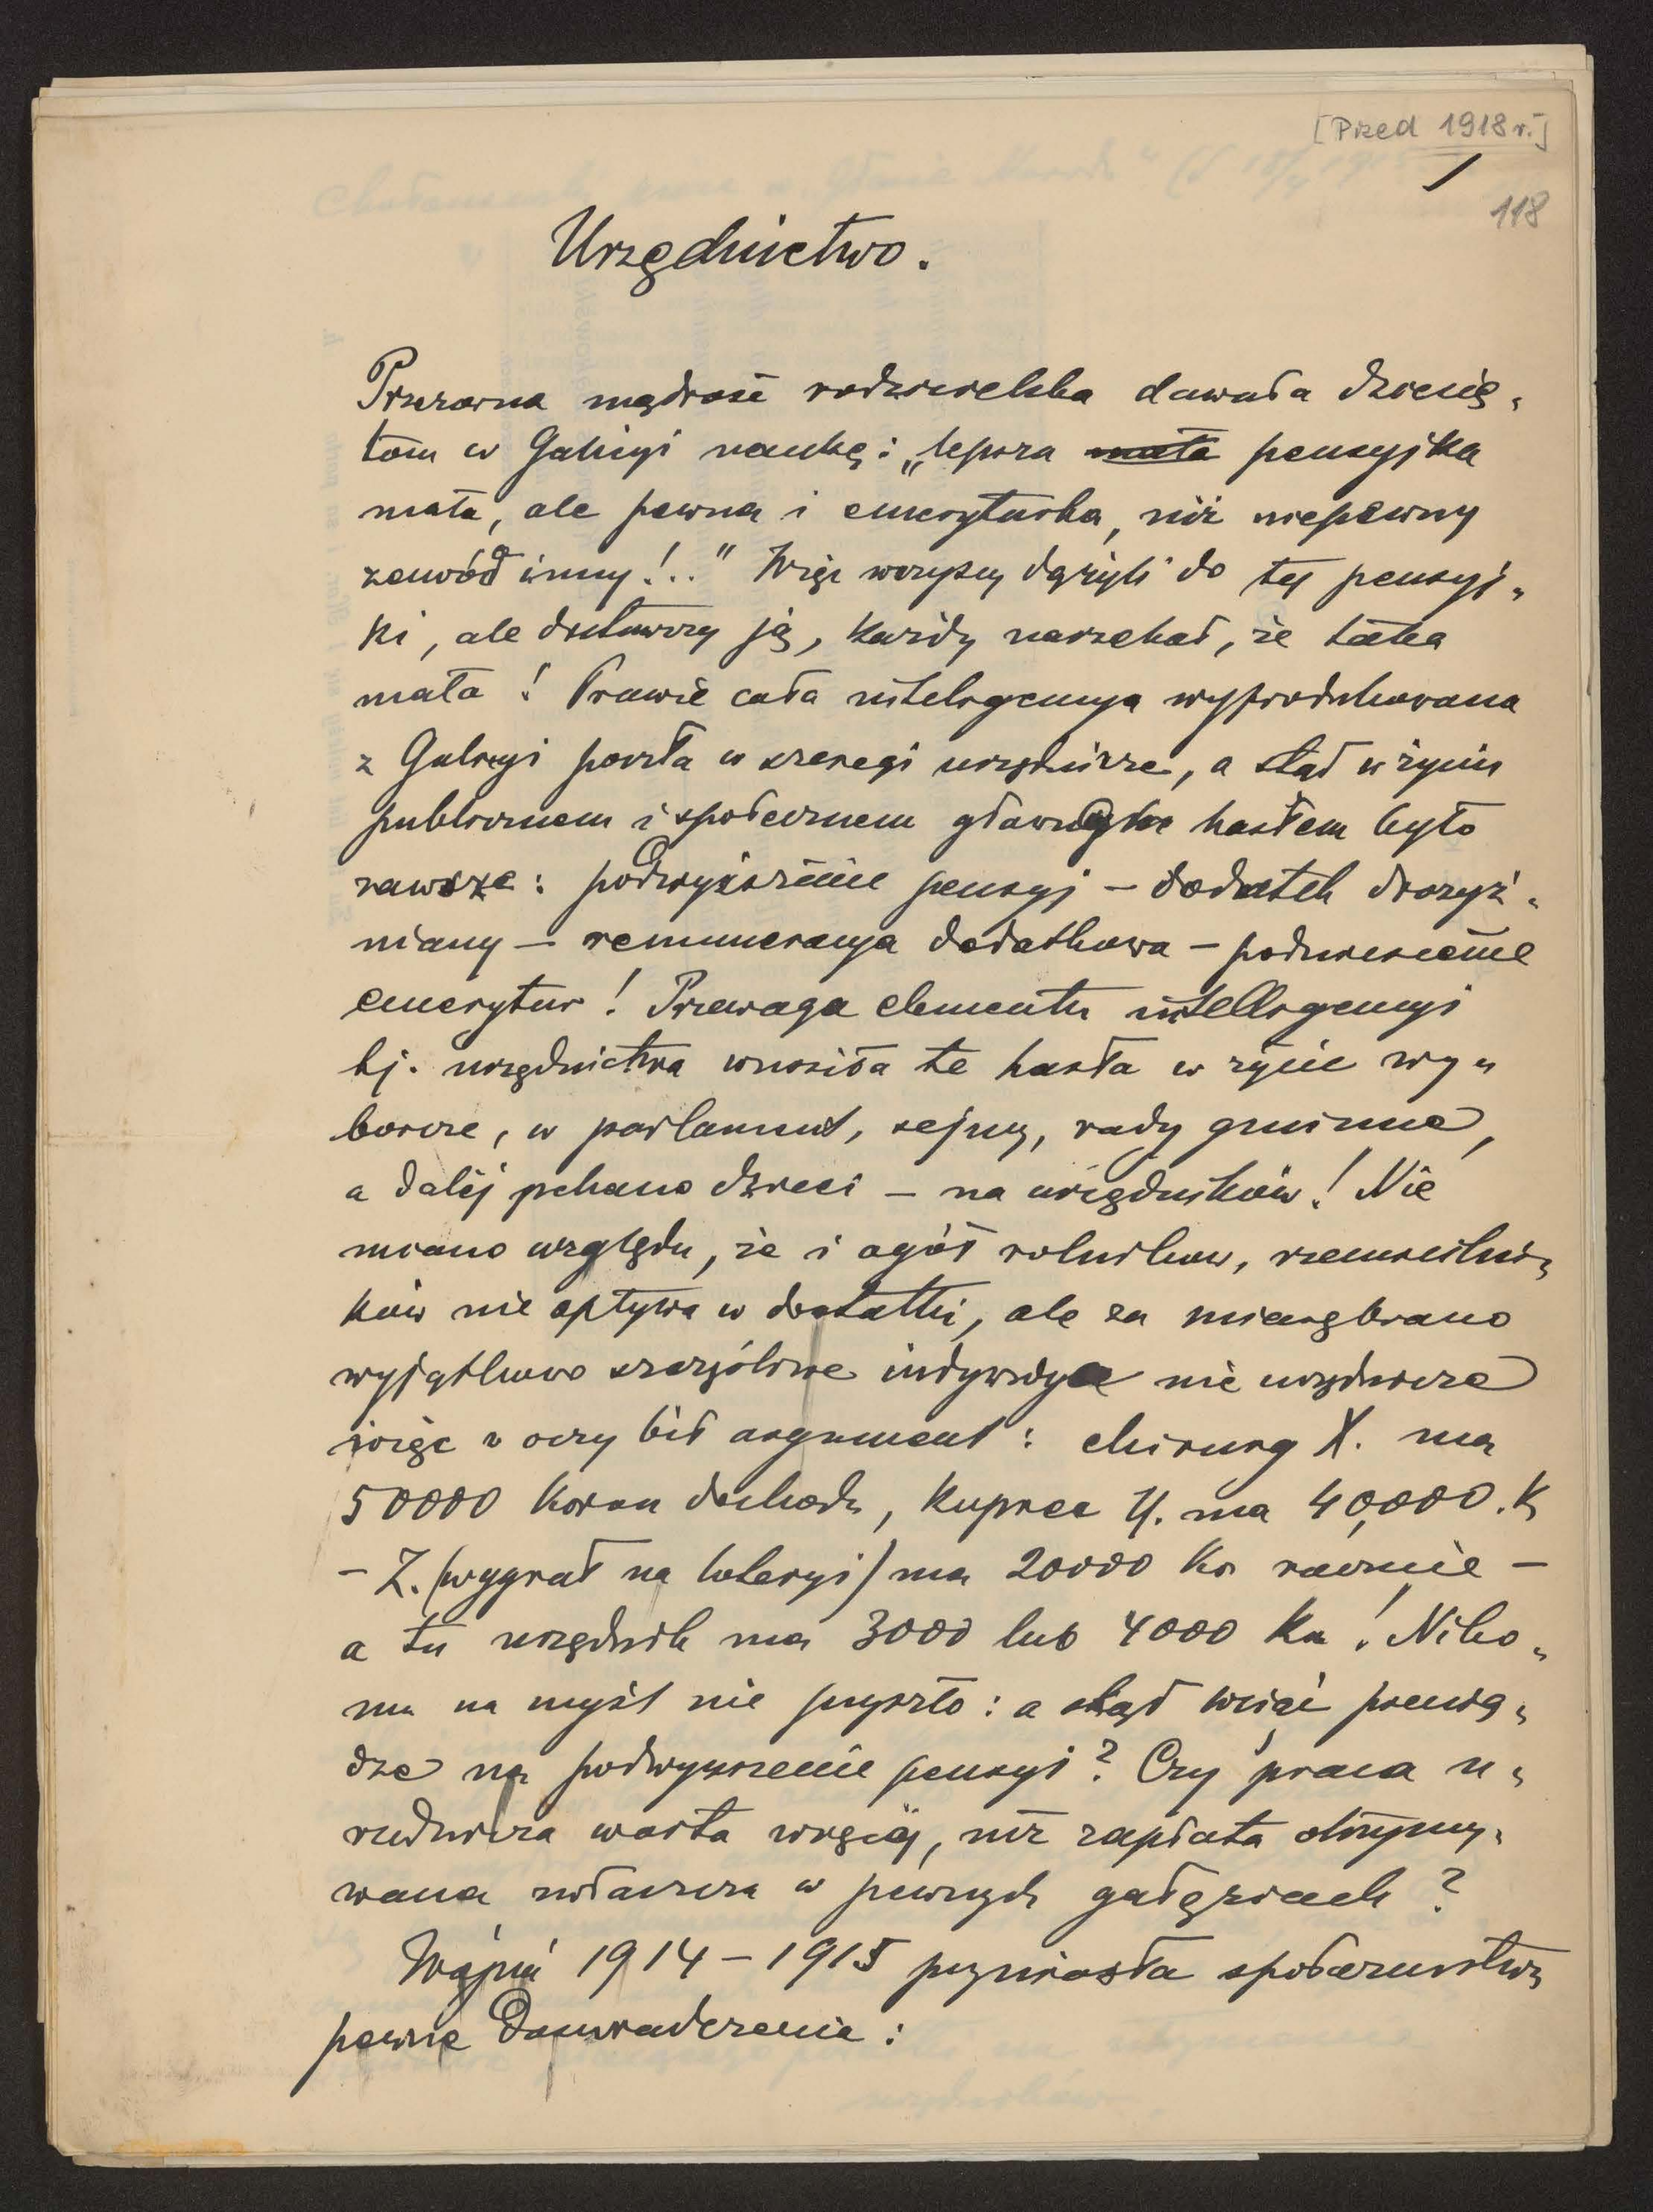 [Przed 1918 r.]
1
118
Urzędnictwo.
Przezorna mądrość rodzicielska dawała dzecię„
tom w Galicyi naukę: „lepsza mała pensyjka
mała, ale pewna i emeryturka, niż niepewny
zawód inny!.." Więc wszyscy dążyli do tej pensyj„
ki, ale dostawszy ją, każdy narzekał, że taka
mała! Prawie cała inteligencya wyprodukowana
z Galicyi poszła w szeregi urzędnicze, a stąd w życiu
publicznem i społecznem głównem hasłem było
zawsze: podwyższenie pensyj – dodatek drożyź„
niany – remuneracya dodatkowa – podniesienie
emerytur! Przewaga elementu intelligencyi
tj. urzędnictwa wnosiła te hasła w życie wy„
borcze, w parlament, sejmy, rady gminne,
a dalej pchano dzieci – na urzędników! Nie
miano względu, że i ogół rolników, rzemieślni„
ków nie opływa w dostatki, ale za miarę brano
wyjątkowo szczęśliwe indywidya nie urzędnicze
więc w oczy bił argument: chirurg X. ma
50000 koron dochodu, kupiec Y. ma 40,000. K
– Z. (wygrał na loteryi) ma 20000 Kor rocznie –
a tu urzędnik ma 3000 lub 4000 Kor! Niko„
mu na myśl nie przyszło: a skąd wziąć pienią„
dze na podwyższenie pensyi? Czy praca u„
rzędnicza warta więcej, niż zapłata otrzymy„
wana zwłaszcza w pewnych gałęziach?
Wojna 1914–1915 przyniosła społeczeństwu
pewne doświadczenie: